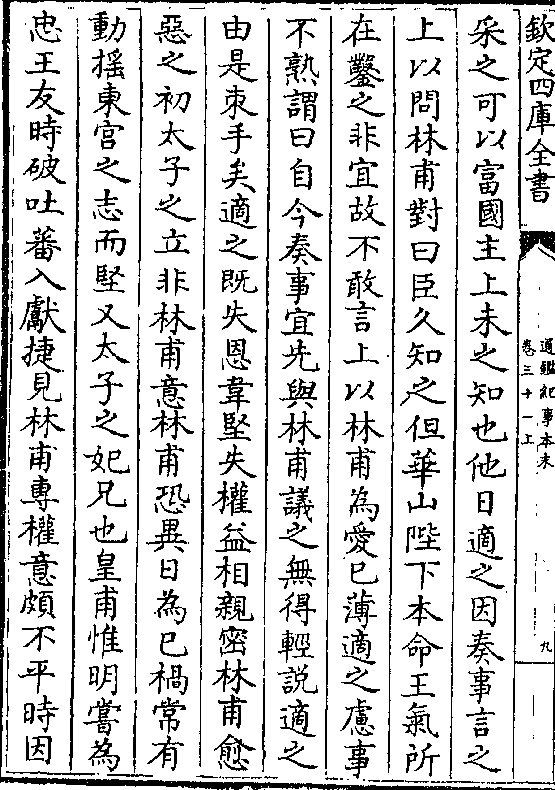 欽定四庫全書
通鑑紀事本末
卷三十一上
九
采之可以富國主上未之知也他日適之因奏事言之
上以問林甫對曰臣久知之但華山陛下本命王氣所
在鑿之非宜故不敢言上以林甫為愛已薄適之慮事
不熟謂曰自今奏事宜先與林甫議之無得輕説適之
由是朿手矣適之既失恩韋堅失權益相親密林甫愈
惡之初太子之立非林甫意林甫恐異日為已禍常有
動摇東宫之志而堅又太子之妃兄也皇甫惟明嘗為
忠王友時破吐蕃入獻捷見林甫專權意頗不平時因